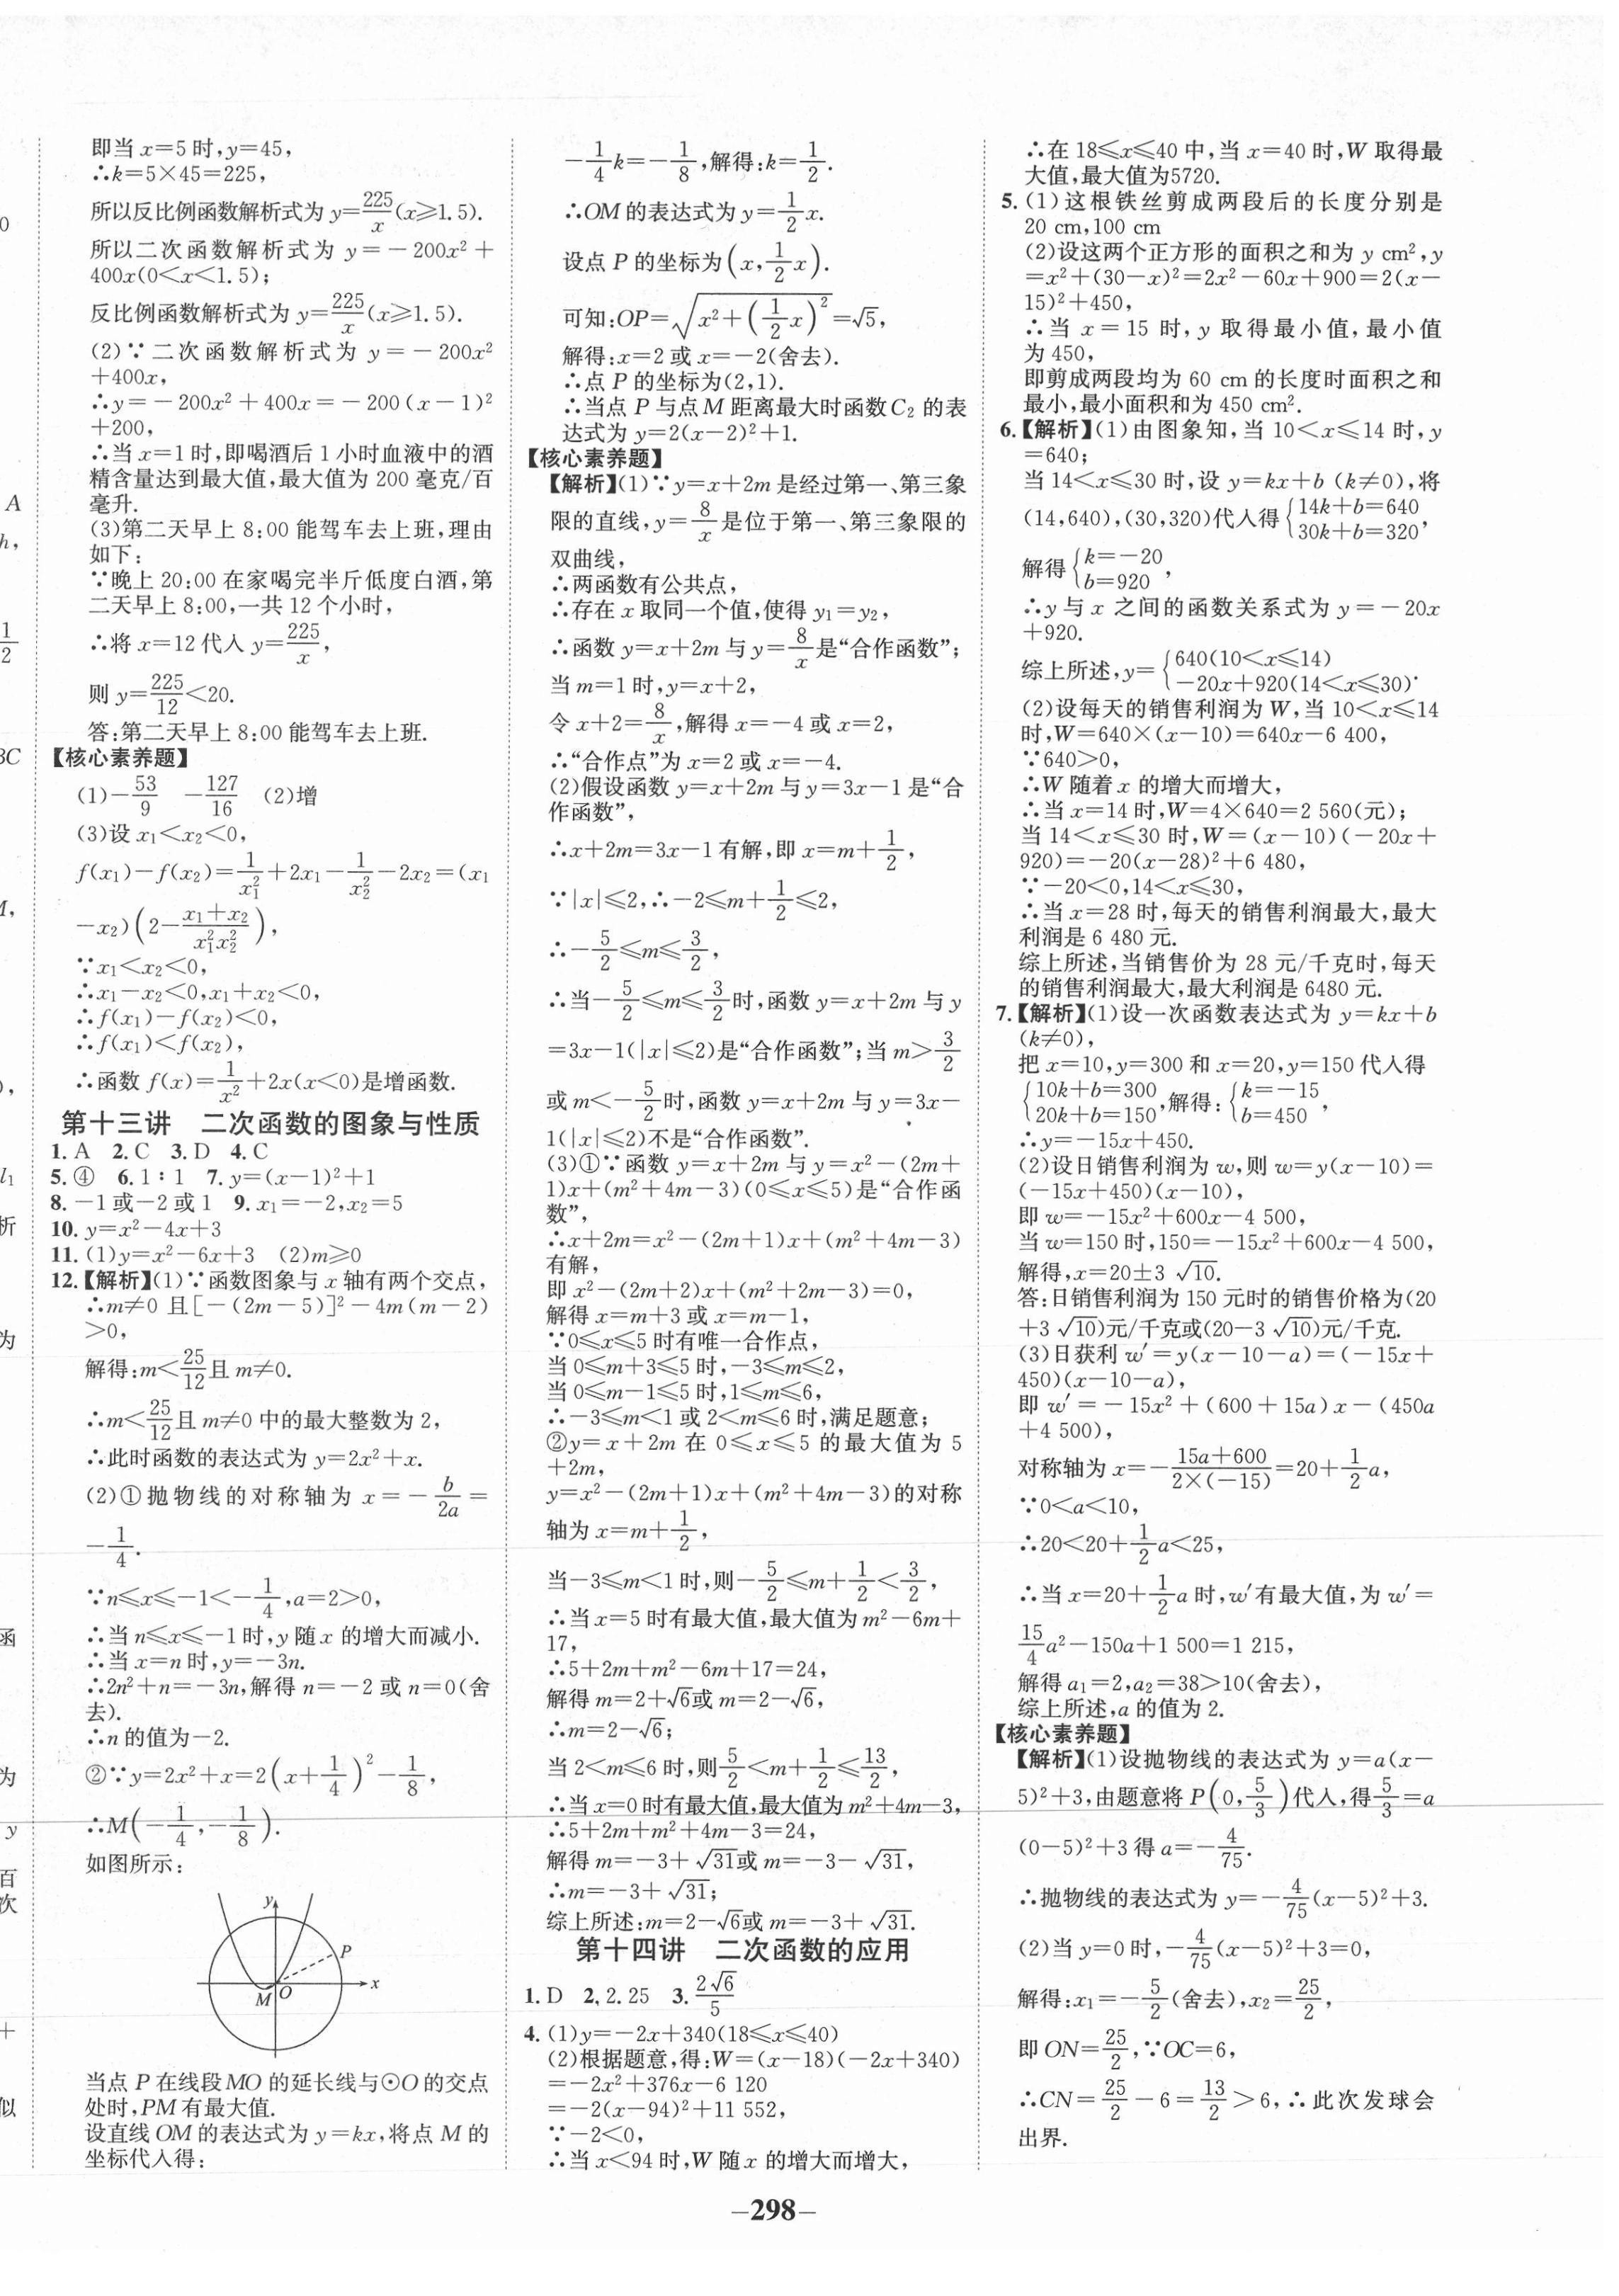 即当 x=5 时,y=45,
∴k=5×45=225,
所以反比例函数解析式为 y=225/x(x≥1.5).
所以二次函数解析式为 y=-200x²+
400x(0<x<1.5);
反比例函数解析式为 y=225/x(x≥1.5).
(2)∵二次函数解析式为 y=-200x²
+400x,
∴y=-200x²+400x=-200(x-1)²
+200,
∴当 x=1 时,即喝酒后 1 小时血液中的酒
精含量达到最大值,最大值为 200 毫克/百
毫升.
(3)第二天早上 8:00 能驾车去上班,理由
如下:
∵晚上 20:00 在家喝完半斤低度白酒,第
二天早上 8:00,一共 12 个小时,
∴将 x=12 代入 y=225/x,
则 y=225/12<20.
答:第二天早上 8:00 能驾车去上班.
【核心素养题】
(1)-53/9 -127/16 (2)增
(3)设 x₁<x₂<0,
f(x₁)-f(x₂)=1/x₁²+2x₁-1/x₂²-2x₂=(x₁
-x₂)(2-(x₁+x₂)/(x₁²x₂²)),
∵x₁<x₂<0,
∴x₁-x₂<0,x₁+x₂<0,
∴f(x₁)-f(x₂)<0,
∴f(x₁)<f(x₂),
∴函数 f(x)=1/x²+2x(x<0)是增函数.
第十三讲 二次函数的图象与性质
1. A 2. C 3. D 4. C
5. ④ 6. 1∶1 7. y=(x-1)²+1
8. -1 或-2 或 1 9. x₁=-2,x₂=5
10. y=x²-4x+3
11. (1)y=x²-6x+3 (2)m≥0
12.【解析】(1)∵函数图象与 x 轴有两个交点,
∴m≠0 且[-(2m-5)]²-4m(m-2)
>0,
解得:m<25/12且 m≠0.
∴m<25/12且 m≠0 中的最大整数为 2,
∴此时函数的表达式为 y=2x²+x.
(2)①抛物线的对称轴为 x=-b/2a=
-1/4.
∵n≤x≤-1<-1/4,a=2>0,
∴当 n≤x≤-1 时,y 随 x 的增大而减小.
∴当 x=n 时,y=-3n.
∴2n²+n=-3n,解得 n=-2 或 n=0(舍
去).
∴n 的值为-2.
②∵y=2x²+x=2(x+1/4)²-1/8,
∴M(-1/4,-1/8).
如图所示:
y
P
x
M O
当点 P 在线段 MO 的延长线与⊙O 的交点
处时,PM 有最大值.
设直线 OM 的表达式为 y=kx,将点 M 的
坐标代入得:
-1/4k=-1/8,解得:k=1/2.
∴OM 的表达式为 y=1/2x.
设点 P 的坐标为(x,1/2x).
可知:OP=√(x²+(1/2x)²)=√5,
解得:x=2 或 x=-2(舍去).
∴点 P 的坐标为(2,1).
∴当点 P 与点 M 距离最大时函数 C₂ 的表
达式为 y=2(x-2)²+1.
【核心素养题】
【解析】(1)∵y=x+2m 是经过第一、第三象
限的直线,y=8/x是位于第一、第三象限的
双曲线,
∴两函数有公共点,
∴存在 x 取同一个值,使得 y₁=y₂,
∴函数 y=x+2m 与 y=8/x是“合作函数”;
当 m=1 时,y=x+2,
令 x+2=8/x,解得 x=-4 或 x=2,
∴“合作点”为 x=2 或 x=-4.
(2)假设函数 y=x+2m 与 y=3x-1 是“合
作函数”,
∴x+2m=3x-1 有解,即 x=m+1/2,
∵|x|≤2,∴-2≤m+1/2≤2,
∴-5/2≤m≤3/2,
∴当-5/2≤m≤3/2时,函数 y=x+2m 与 y
=3x-1(|x|≤2)是“合作函数”;当 m>3/2
或 m<-5/2时,函数 y=x+2m 与 y=3x-
1(|x|≤2)不是“合作函数”.
(3)①∵函数 y=x+2m 与 y=x²-(2m+
1)x+(m²+4m-3)(0≤x≤5)是“合作函
数”,
∴x+2m=x²-(2m+1)x+(m²+4m-3)
有解,
即 x²-(2m+2)x+(m²+2m-3)=0,
解得 x=m+3 或 x=m-1,
∵0≤x≤5 时有唯一合作点,
当 0≤m+3≤5 时,-3≤m≤2,
当 0≤m-1≤5 时,1≤m≤6,
∴-3≤m<1 或 2<m≤6 时,满足题意;
②y=x+2m 在 0≤x≤5 的最大值为 5
+2m,
y=x²-(2m+1)x+(m²+4m-3)的对称
轴为 x=m+1/2,
当-3≤m<1 时,则-5/2≤m+1/2<3/2,
∴当 x=5 时有最大值,最大值为 m²-6m+
17,
∴5+2m+m²-6m+17=24,
解得 m=2+√6或 m=2-√6,
∴m=2-√6;
当 2<m≤6 时,则5/2<m+1/2≤13/2,
∴当 x=0 时有最大值,最大值为 m²+4m-3,
∴5+2m+m²+4m-3=24,
解得 m=-3+√31或 m=-3-√31,
∴m=-3+√31;
综上所述:m=2-√6或 m=-3+√31.
第十四讲 二次函数的应用
1. D 2. 2.25 3. 2√6/5
4. (1)y=-2x+340(18≤x≤40)
(2)根据题意,得:W=(x-18)(-2x+340)
=-2x²+376x-6 120
=-2(x-94)²+11 552,
∵-2<0,
∴当 x<94 时,W 随 x 的增大而增大,
∴在 18≤x≤40 中,当 x=40 时,W 取得最
大值,最大值为5720.
5. (1)这根铁丝剪成两段后的长度分别是
20 cm,100 cm
(2)设这两个正方形的面积之和为 y cm²,y
=x²+(30-x)²=2x²-60x+900=2(x-
15)²+450,
∴当 x=15 时,y 取得最小值,最小值
为 450,
即剪成两段均为 60 cm 的长度时面积之和
最小,最小面积和为 450 cm².
6.【解析】(1)由图象知,当 10<x≤14 时,y
=640;
当 14<x≤30 时,设 y=kx+b (k≠0),将
(14,640),(30,320)代入得{14k+b=640
30k+b=320,
解得{k=-20
b=920,
∴y 与 x 之间的函数关系式为 y=-20x
+920.
综上所述,y={640(10<x≤14)
-20x+920(14<x≤30).
(2)设每天的销售利润为 W,当 10<x≤14
时,W=640×(x-10)=640x-6 400,
∵640>0,
∴W 随着 x 的增大而增大,
∴当 x=14 时,W=4×640=2 560(元);
当 14<x≤30 时,W=(x-10)(-20x+
920)=-20(x-28)²+6 480,
∵-20<0,14<x≤30,
∴当 x=28 时,每天的销售利润最大,最大
利润是 6 480 元.
综上所述,当销售价为 28 元/千克时,每天
的销售利润最大,最大利润是 6480 元.
7.【解析】(1)设一次函数表达式为 y=kx+b
(k≠0),
把 x=10,y=300 和 x=20,y=150 代入得
{10k+b=300
20k+b=150,解得:{k=-15
b=450,
∴y=-15x+450.
(2)设日销售利润为 w,则 w=y(x-10)=
(-15x+450)(x-10),
即 w=-15x²+600x-4 500,
当 w=150 时,150=-15x²+600x-4 500,
解得,x=20±3√10.
答:日销售利润为 150 元时的销售价格为(20
+3√10)元/千克或(20-3√10)元/千克.
(3)日获利 w′=y(x-10-a)=(-15x+
450)(x-10-a),
即 w′=-15x²+(600+15a)x-(450a
+4 500),
对称轴为 x=-(15a+600)/(2×(-15))=20+1/2a,
∵0<a<10,
∴20<20+1/2a<25,
∴当 x=20+1/2a 时,w′有最大值,为 w′=
15/4a²-150a+1 500=1 215,
解得 a₁=2,a₂=38>10(舍去),
综上所述,a 的值为 2.
【核心素养题】
【解析】(1)设抛物线的表达式为 y=a(x-
5)²+3,由题意将 P(0,5/3)代入,得5/3=a
(0-5)²+3 得 a=-4/75.
∴抛物线的表达式为 y=-4/75(x-5)²+3.
(2)当 y=0 时,-4/75(x-5)²+3=0,
解得:x₁=-5/2(舍去),x₂=25/2,
即 ON=25/2,∵OC=6,
∴CN=25/2-6=13/2>6,∴此次发球会
出界.
-298-